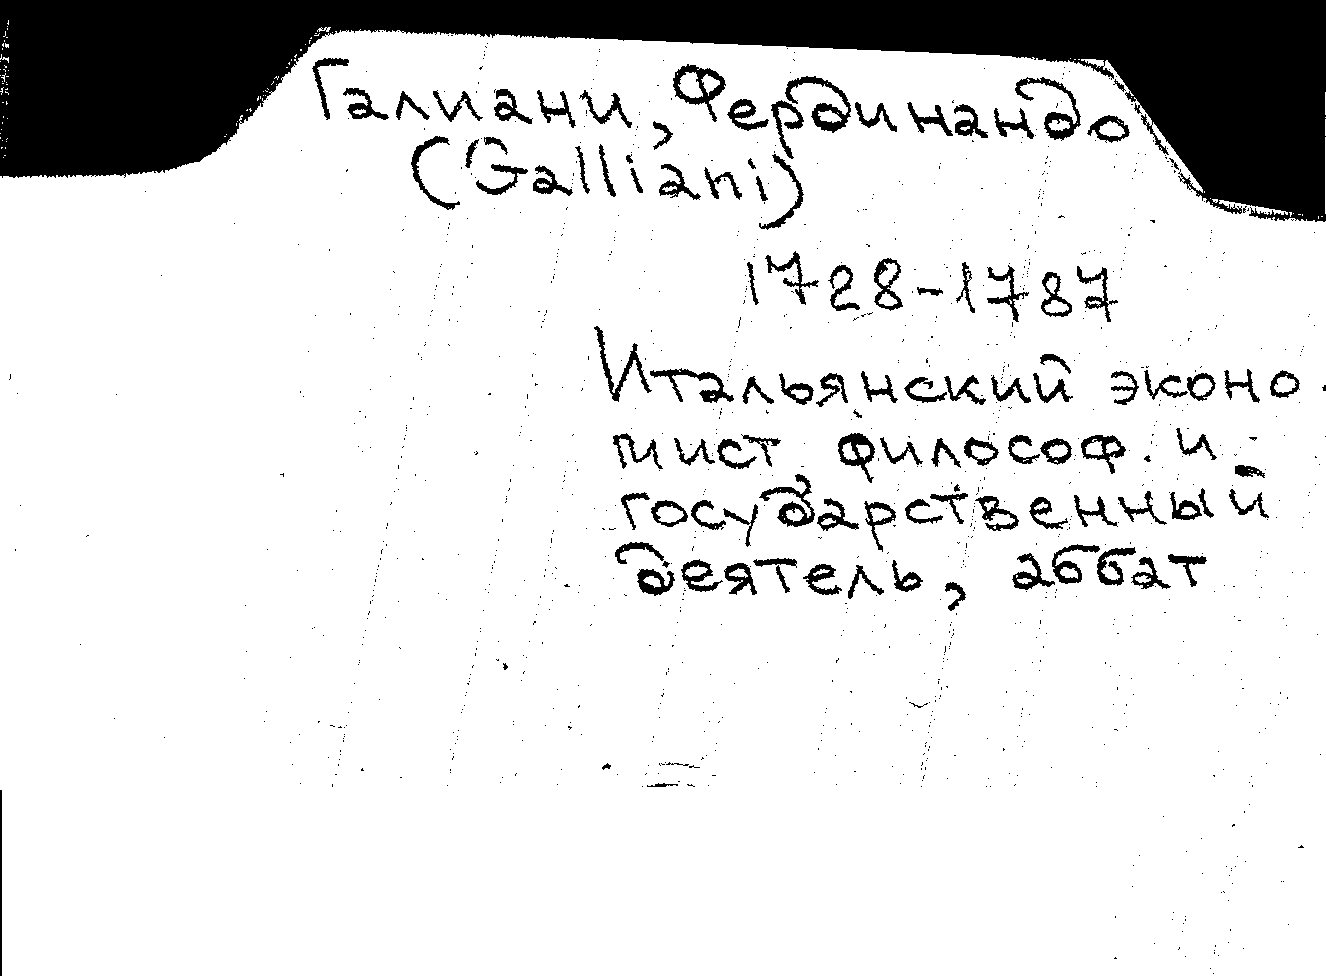 Галиани, Фердинандо
(Galliani)
1728-1787
Итальянский эконо-
мист, философ и
государственный
деятель, аббат